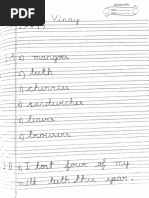 Vinay
1.A) 1) mangoes
2) teeth
3) cherries
4) sandwiches
5) leaves
6) trousers
2.B) 1) I lost four of my
milk teeth this year.